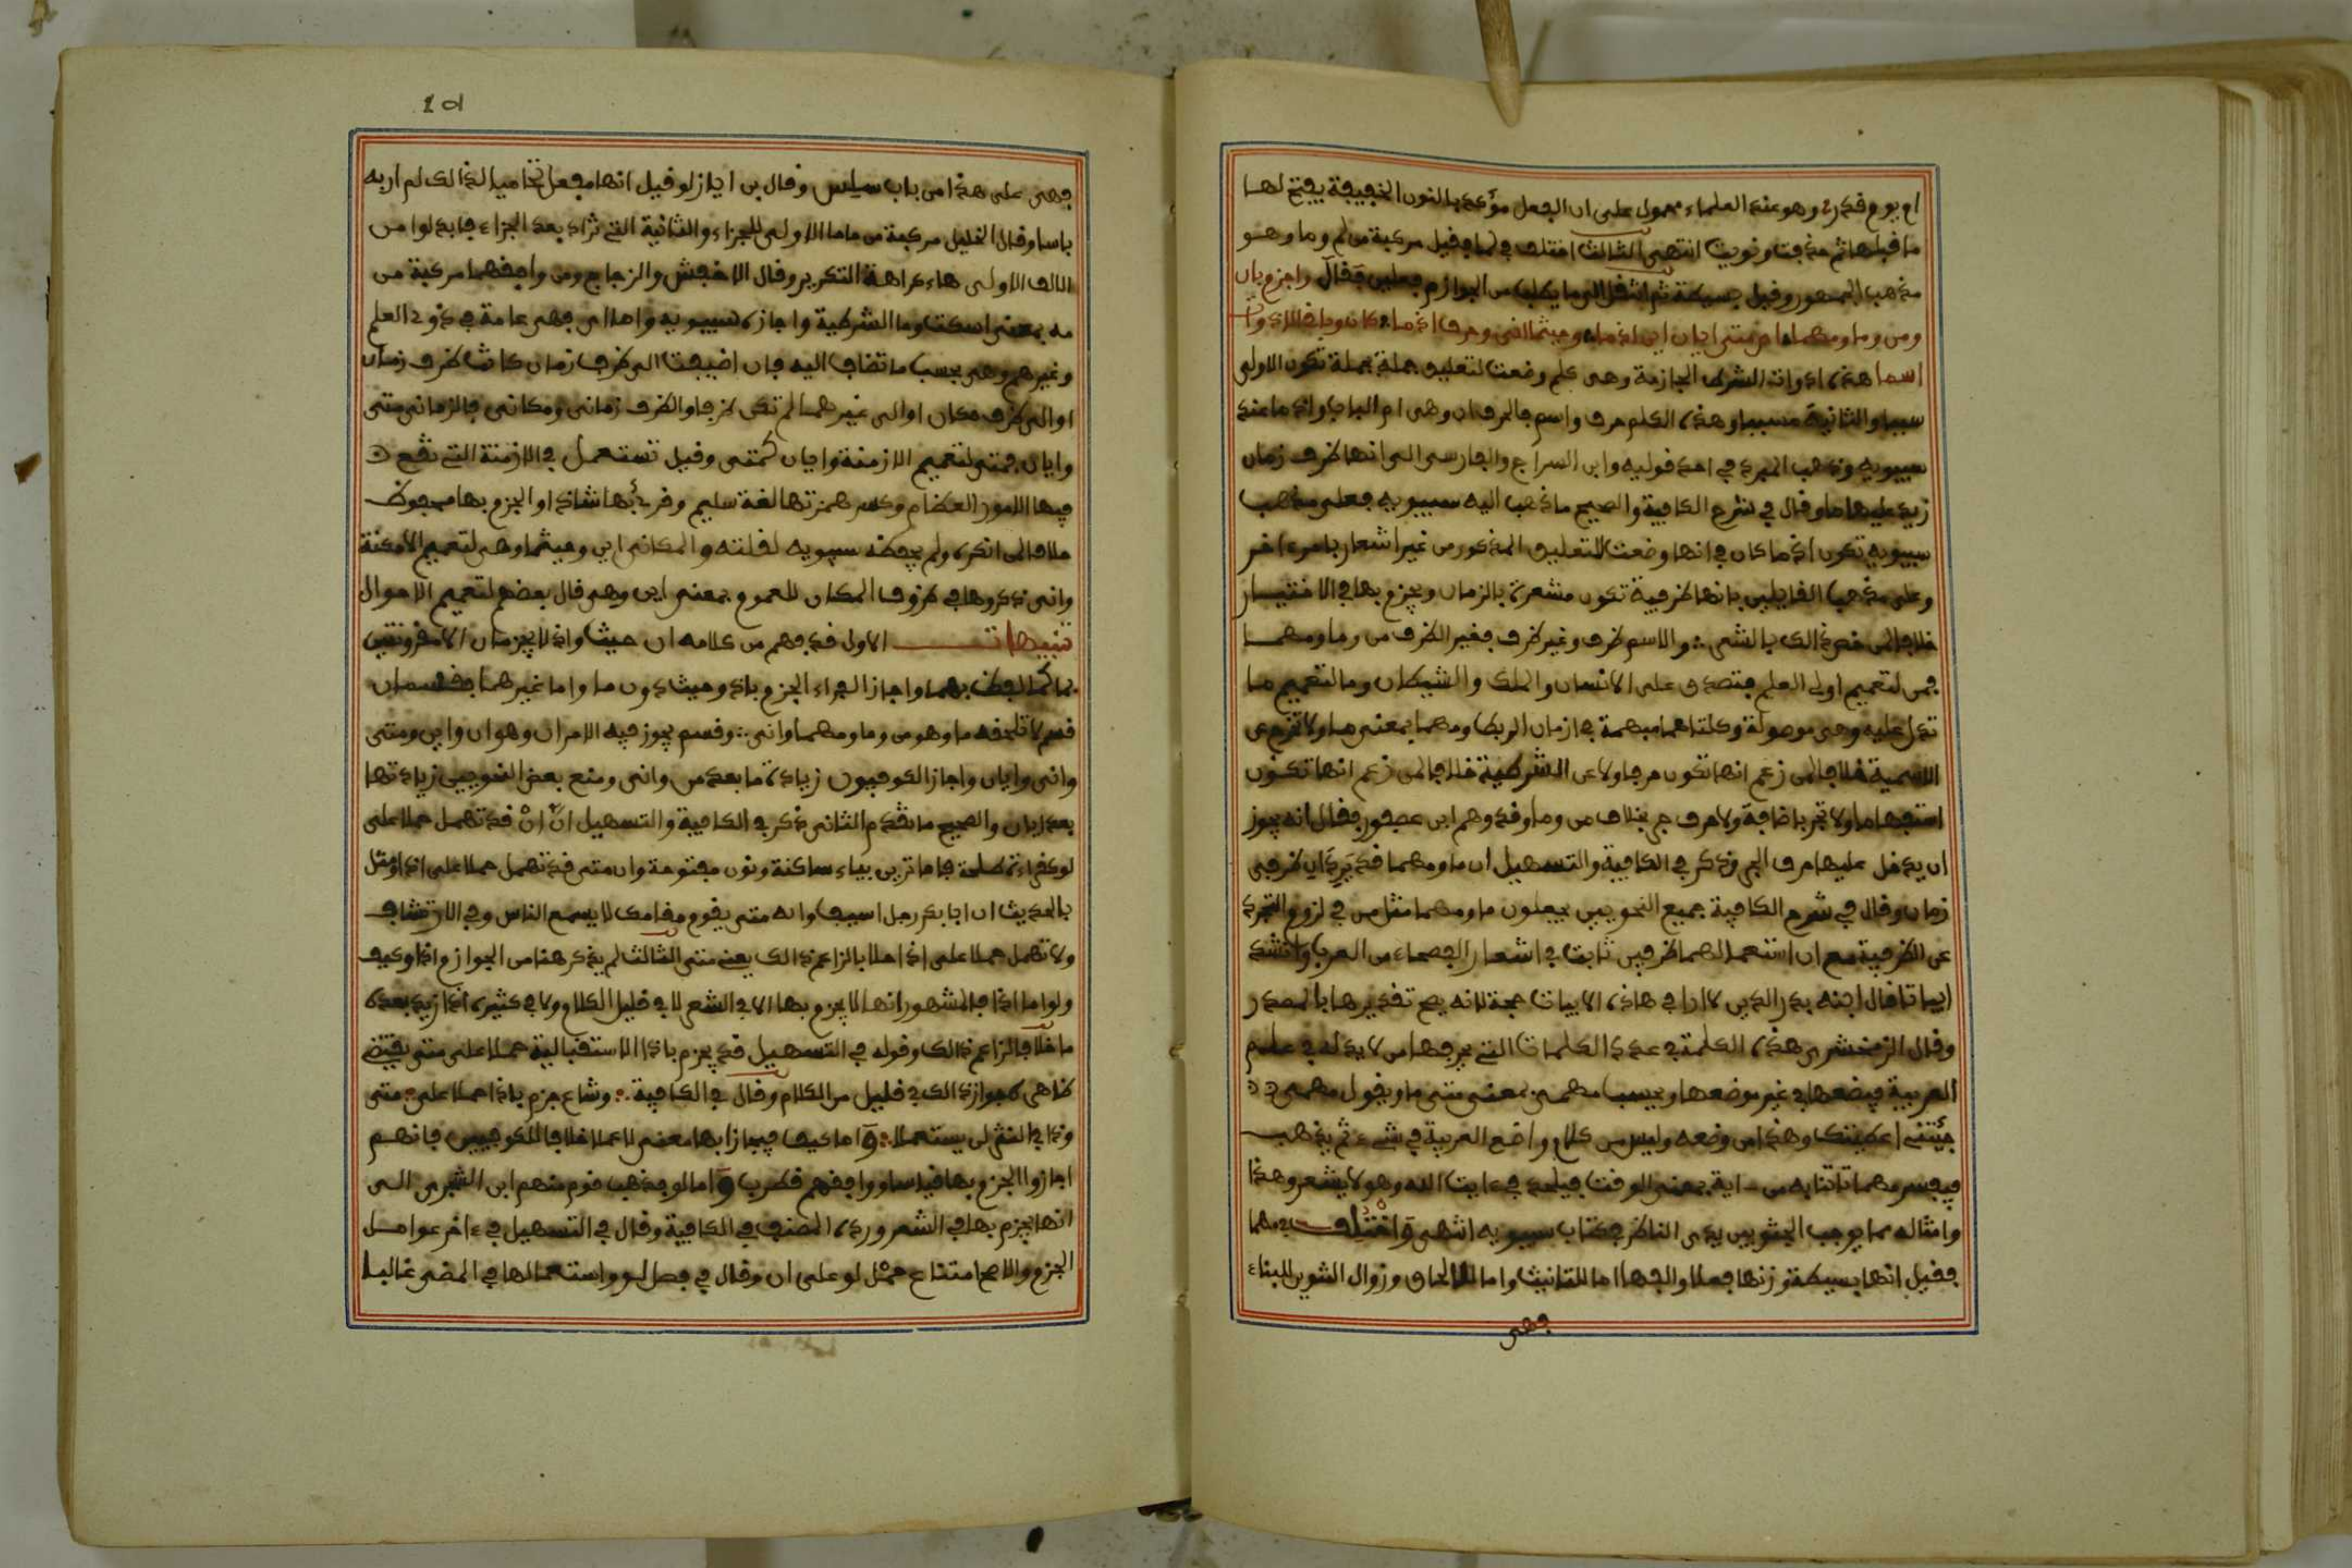 ام يوم قدر، وهو عند العلماء محمول على ان الفعل مؤكد بالنون الخفيفة يفتح لها
ما قبلها ثم حذفت ونويت انتهى الثالث اختلف في لما فقيل مركبة من لم وما وهو
مذهب الجمهور وقيل بسيطة ثم انتقل الى ما يطلب من الجوازم فعلين فقال واجزم بان
ومن وما ومهما اي متى ايان اين اذما وحيثما انى وحرف اذما كان وباقي الادوات
اسما هذه ادوات الشرط الجازمة وهي كلم وضعت لتعليق جملة بجملة تكون الاولى
سببا والثانية مسببا وهذه الكلم حرف واسم فالحرف ان وهي ام الباب واذما عند
سيبويه وذهب المبرد في احد قوليه وابن السراج والفارسي الى انها ظرف زمان
زيد عليها ما وقال في شرح الكافية والصحيح ما ذهب اليه سيبويه فعلى مذهب
سيبويه تكون اذما كان في انها وضعت للتعليق المذكور من غير اشعار بامر ءاخر
وعلى مذهب القايلين بانها ظرفية تكون مشعرة بالزمان ويجزم بها في الاختيار
خلافا لمن خص ذالك بالشعر والاسم ظرف وغير ظرف فغير الظرف من وما ومهما
فمن لتعميم اولي العلم فتصدق على الانسان والملك والشيطان وما لتعميم ما
تدل عليه وهي موصولة وكلتاهما مبهمة في ازمان الربط ومهما بمعنى ما ولا تخرج عن
الاسمية خلافا لمن زعم انها تكون حرفا ولا عن الشرطية خلافا لمن زعم انها تكون
استفهاما ولا تجر باضافة ولا حرف جر بخلاف من وما وقد وهم ابن عصفور فقال انه يجوز
ان يدخل عليها حرف الجر وذكر في الكافية والتسهيل ان ما ومهما قد يردان ظرفي
زمان وقال في شرح الكافية جميع النحويين يجعلون ما ومهما مثل من في لزوم التجرد
عن الظرفية مع ان استعمالهما ظرفين ثابت في اشعار الفصحاء من العرب وانشد
ابياتا قال ابنه بدر الدين لا ارى في هاذه الابيات حجة لانه يصح تقديرها بالمصدر
وقال الزمخشري هذه الكلمة في عداد الكلمات التي يحرفها من لا يد له في علم
العربية فيضعها في غير موضعها ويحسب مهمى بمعنى متى ما ويقول مهمى
جئتني اعطيتك وهذا من وضعه وليس من كلام واضع العربية في شيء ثم يذهب
فيفسر مهما تاتنا به من ءاية بمعنى الوقت فيلحد في ءايات الله وهو لا يشعر وهذا
وامثاله مما يوجب الجثو بين يدي الناظر في كتاب سيبويه انتهى واختلف في مهما
فقيل انها بسيطة وزنها فعلا والفها اما للتانيث واما للالحاق وزوال التنوين للبناء
فهي
فهي على هذا من باب سلس وقال بن اياز لو قيل انها مفعل تحاميا لذالك لم ار به
باسا وقال الخليل مركبة من ماما الاولى للجزاء والثانية التي تزاد بعد الجزاء فابدلوا من
الالف الاولى هاء كراهة التكرير وقال الاخفش والزجاج ومن وافقهما مركبة من
مه بمعنى اسكت وما الشرطية واجازه سيبويه واما اي فهي عامة في ذوي العلم
وغيرهم وهي بحسب ما تضاف اليه فان اضيفت الى ظرف زمان كانت ظرف زمان
او الى ظرف مكان او الى غيرهما لم تكن ظرفا والظرف زماني ومكاني فالزماني متى
وايان فمتى لتعميم الازمنة وايان كمتى وقيل تستعمل في الازمنة التي تقع
فيها الامور العظام وكسر همزتها لغة سليم وقرئ بها شاذا والجزم بها محفوظ
خلافا لمن انكره ولم يحفظه سيبويه لقلته والمكاني اين وحيثما وهي لتعميم الامكنة
وانى ذكروها في ظروف المكان للعموم بمعنى اين وهي قال بعضهم لتعميم الاحوال
تنبيهات الاول قد فهم من كلامه ان حيث واذ لا يجزمان الا مقرونتين
بما كما لفظ بهما واجاز الفراء الجزم باذ وحيث دون ما واما غيرهما فقسمان
قسم لا تلحقه ما وهو من وما ومهما وانى وقسم يجوز فيه الامران وهو ان واين ومتى
وانى وايان واجاز الكوفيون زيادة ما بعد من وانى ومنع بعض النحويين زيادتها
بعد ايان والصحيح ما تقدم الثاني ذكر في الكافية والتسهيل ان ان قد تهمل حملا على
لو كقراءة طلحة فاما ترين بياء ساكنة ونون مفتوحة وان متى قد تهمل حملا على اذا ومثل
بالحديث ان ابا بكر رجل اسيف وانه متى يقوم مقامك لا يسمع الناس وفي الارتشاف
ولا تهمل حملا على اذا خلافا لزاعم ذالك يعني متى الثالث لم يذكر هنا من الجوازم اذا وكيف
ولو اما اذا فالمشهور انها لا يجزم بها الا في الشعر لا في قليل الكلام ولا في كثيره اذا زيد بعده
ما خلافا لزاعم ذالك وقوله في التسهيل قد يجزم باذا الاستقبالية حملا على متى يقتضي
ظاهره جواز ذالك في قليل من الكلام وقال في الكافية وشاع جزم باذا حملا على متى
وذا في النثر لن يستعملا واما كيف فيجازا بها معنى لا عملا خلافا للكوفيين فانهم
اجازوا الجزم بها قياسا ووافقهم قطرب واما لو فذهب قوم منهم ابن الشجري الى
انها يجزم بها في الشعر ورده المصنف في الكافية وقال في التسهيل في ءاخر عوامل
الجزم والاصح امتناع حمل لو على ان وقال في فصل لو واستعمالها في المضي غالبا